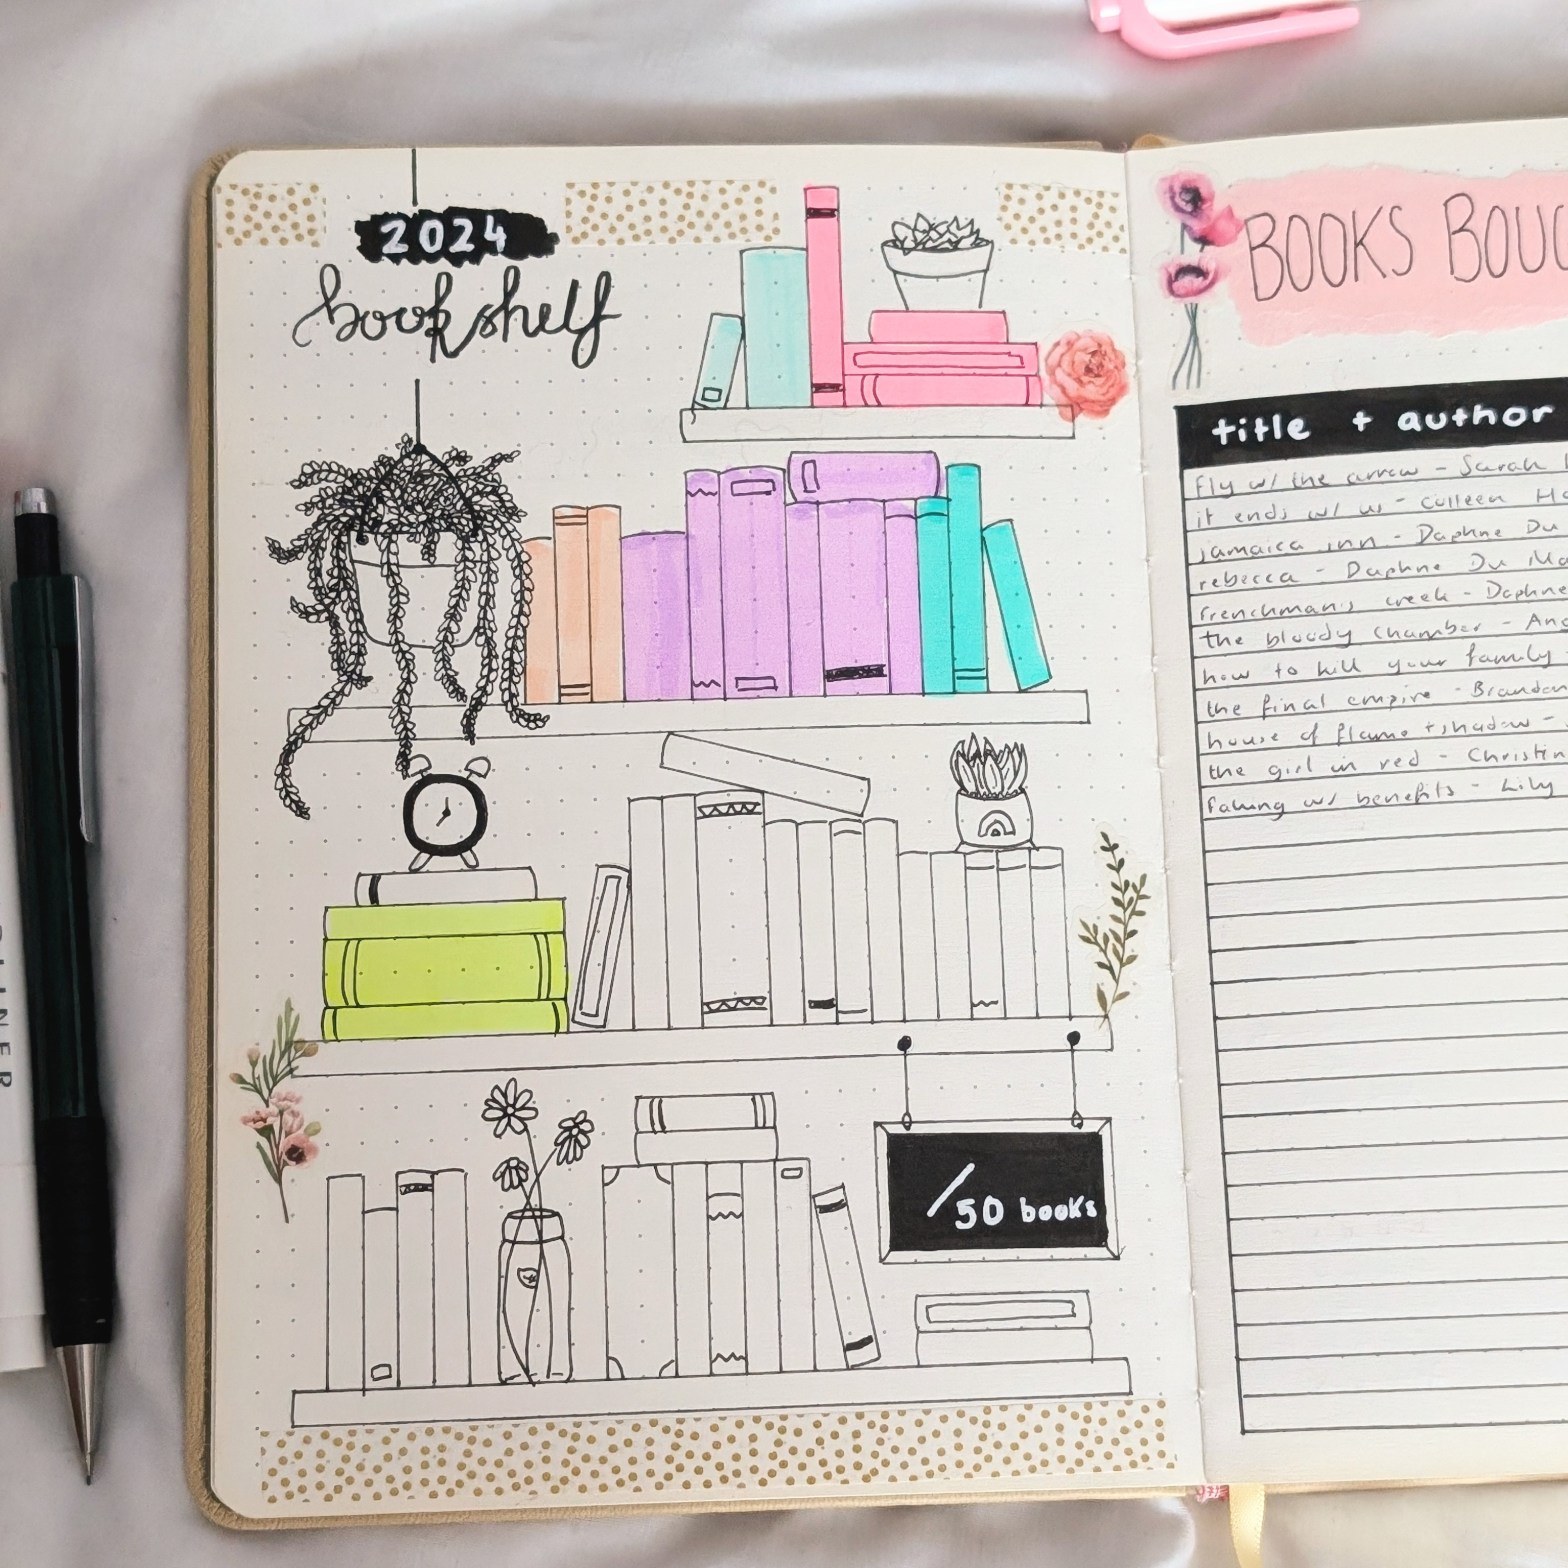 2024
bookshelf
/50 books
BOOKS BOU
title + author
fly w/ the arrow - Sarah
it ends w/ us - Colleen H
jamaica inn - Daphne Du
rebecca - Daphne Du Ma
frenchman's creek - Daphne
the bloody chamber - Ang
how to kill your family -
the final empire - Brandon
house of flame + shadow -
the girl in red - Christin
faking w/ benefits - Lily